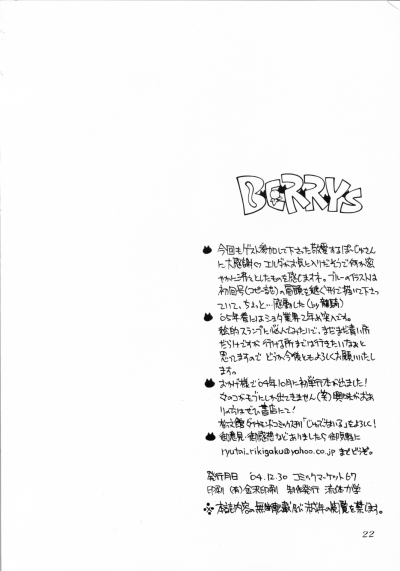 BERRYS
今回もゲスト参加して下さった敬愛するぽ～じゅさん
に大感謝♡エルダが大気に入りだそうで何か密
やかに沸々としたものを感じますネ。ブルーのイラストは
初回号(コピー誌)の冒頭を継ぐ形で描いて下さっ
ていて、ちょっと…感動した(by 龍騎)
'05年春にはショタ業界2年め突入です。
絵的スランプに悩んでみたりで、まだまだ青い所
だらけですが行ける所までは行きたいなぁと
思ってますのでどうか今後ともよろしくお願いいたし
ます。
おかげ様で'04年10月に初単行本が出ました!
女のコがモブにしか出てきません(笑)興味がおあ
りの方はぜひ書店にて!
をよろしく!
御意見・御感想などありましたらお気軽に
ryutai_rikigaku@yahoo.co.jp までどうぞ。
発行月日 '04.12.30 コミックマーケット67
印刷 (有)金沢印刷 制作発行 流体力学
※本誌内容の無断転載及び未成年の閲覧を禁じます。
22